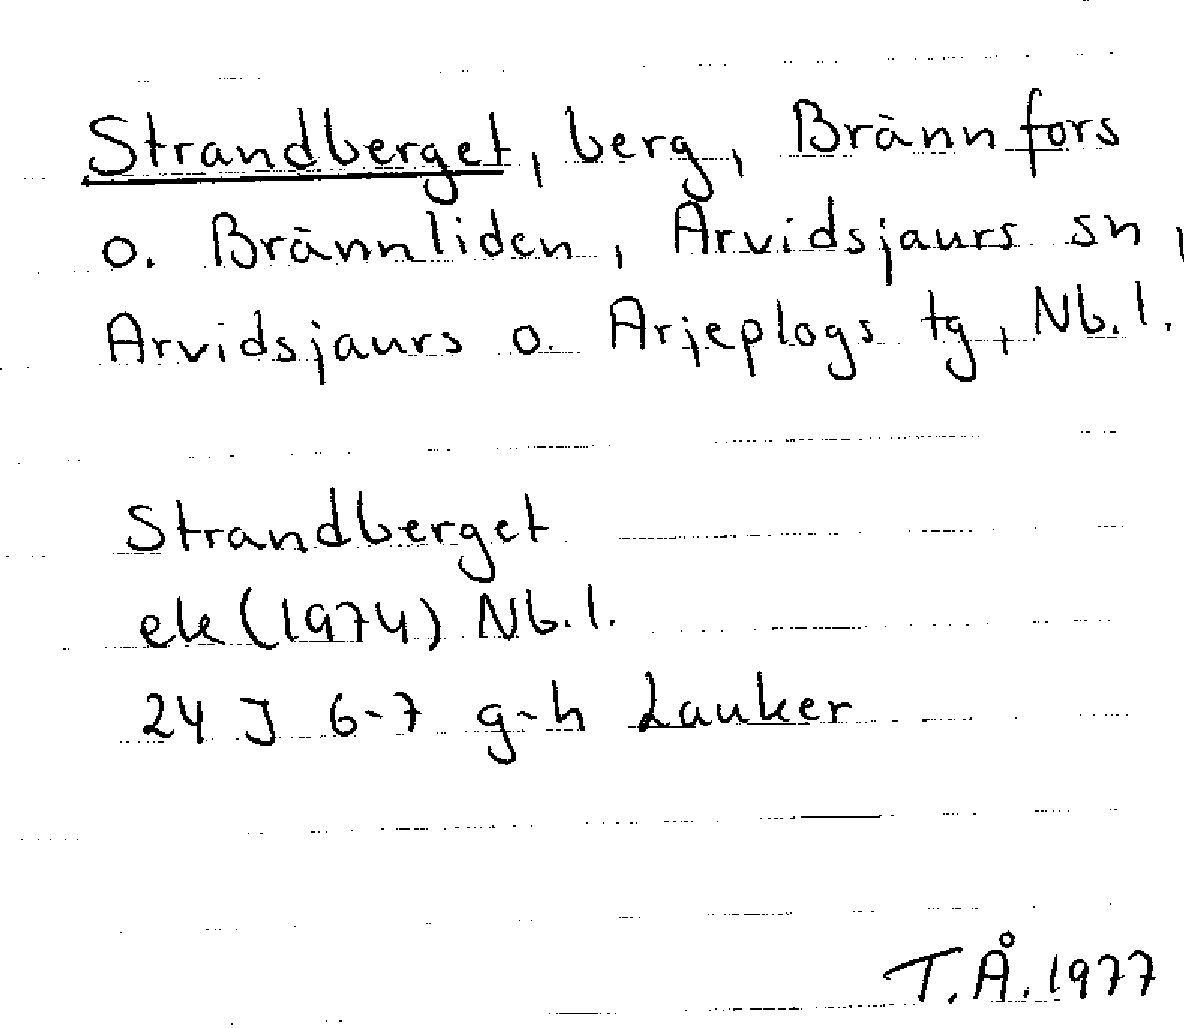 Strandberget, berg, Brännfors
o. Brännliden, Arvidsjaurs sn,
Arvidsjaurs o. Arjeplogs tg, Nb.l.
Strandberget
ek (1974) Nb.l.
24 J 6-7 g-h Lauker
T.Å. 1977